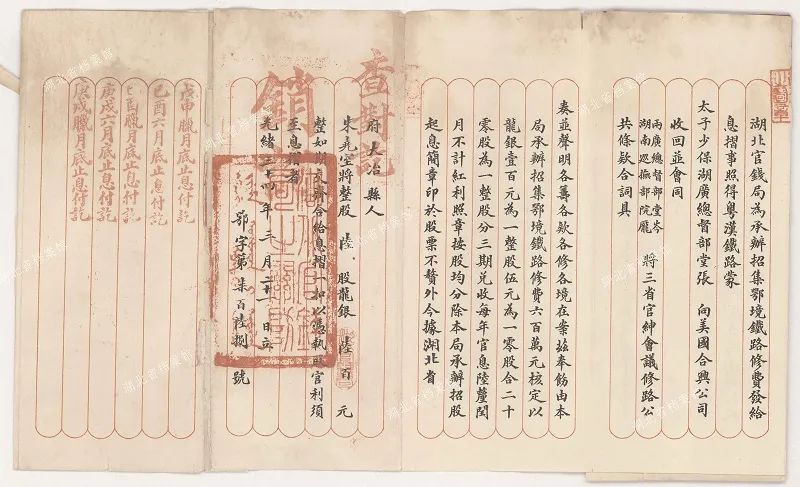 湖北官錢局為承辦招集鄂境鐵路修費發給
息摺事照得粵漢鐵路蒙
太子少保湖廣總督部堂張　向美國合興公司
收回並會同
兩廣總督部堂岑
湖南巡撫部院龐
將三省官紳會議修路公
共條款合詞具
奏並聲明各籌各款各修各境在案茲奉飭由本
局承辦招集鄂境鐵路修費六百萬元核定以
龍銀壹百元為一整股伍元為一零股合二十
零股為一整股分三期兌收每年官息陸釐閏
月不計紅利照章按股均分除本局承辦招股
起息簡章印於股票不贅外今據湖北省
府大冶縣人
朱堯室將整股　陸　股龍銀　陸百　元
整如期交齊合給息摺一扣以憑執取官利須
至息摺者
光緒三十四年三月二十一日
鄂字第柒百陸捌號
查對訖
銷
戊申臘月底止息付訖
己酉六月底止息付訖
己酉臘月底止息付訖
庚戌六月底止息付訖
庚戌臘月底止息付訖
湖北省档案馆